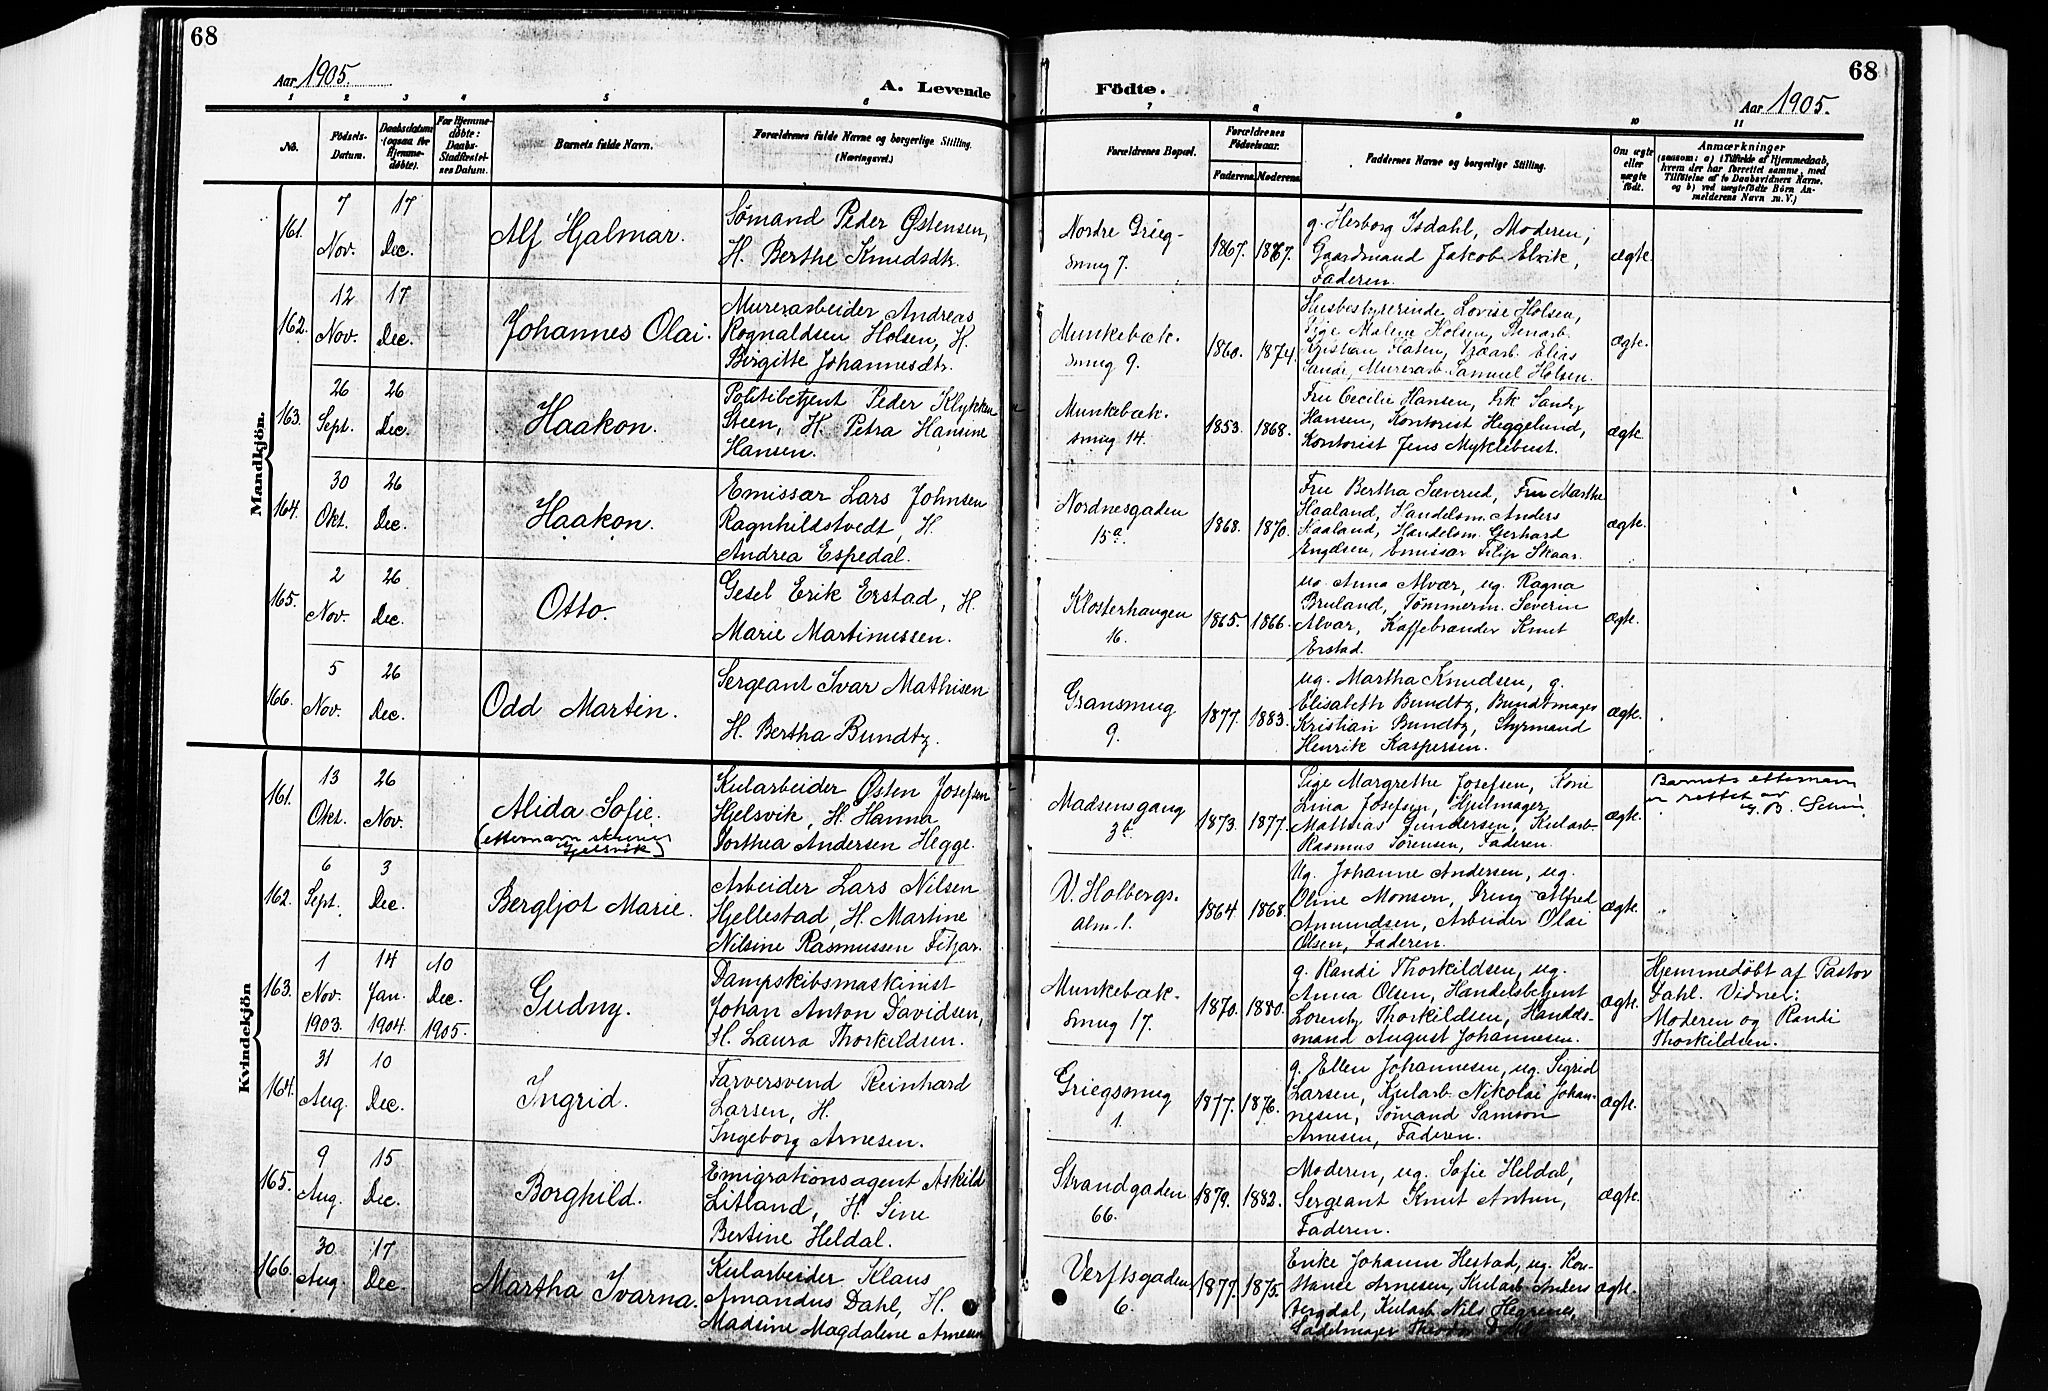 68
Aar 1905.
A. Levende
1 2 3 4 5 6
No.
Födsels-
Datum.
Daabsdatum
(ogsaa for
Hjemme-
döbte).
For Hjemme-
døbte:
Daabs-
Stadfæstel-
ses Datum.
Barnets fulde Navn.
Forældrenes fulde Navne og borgerlige Stilling.
(Næringsvei.)
Mandkjön.
161.
7
Nov.
17
Dec.
Alf Hjalmar.
Sømand Peder Østensen,
H. Berthe Knudsdtr.
162.
12
Nov.
17
Dec.
Johannes Olai.
Murerarbeider Andreas
Rognaldsen Holsen, H.
Birgitte Johannesdtr.
163.
26
Sept.
26
Dec.
Haakon.
Politibetjent Peder Klykken
Steen, H. Petra Hansine
Hansen.
164.
30
Okt.
26
Dec.
Haakon.
Emissær Lars Johnsen
Ragnhildstvedt, H.
Andrea Espedal.
165.
2
Nov.
26
Dec.
Otto.
Gesel Erik Erstad, H.
Marie Martinussen.
166.
5
Nov.
26
Dec.
Odd Martin.
Sergeant Ivar Mathisen
H. Bertha Bundtz.
Kvindekjön
161.
13
Okt.
26
Nov.
Alida Sofie.
(etternavn skrives
Hjelsvik)
Kularbeider Østen Josefsen
Hjelsvik, H. Hanna
Dorthea Andersen Hegge.
162.
6
Sept.
3
Dec.
Bergljot Marie.
Arbeider Lars Nilsen
Hjellestad, H. Martine
Nilsine Rasmussen Fitjar.
163.
1
Nov.
1903.
14
Jan.
1904.
10
Dec.
1905.
Gudny.
Dampskibsmaskinist
Johan Anton Davidsen,
H. Laura Thorkildsen.
164.
31
Aug.
10
Dec.
Ingrid.
Farversvend Reinhard
Larsen, H.
Ingeborg Arnesen.
165.
9
Aug.
15
Dec.
Borghild.
Emigrationsagent Askild
Litland, H. Sine
Bertine Heldal.
166.
30
Aug
17
Dec.
Martha Ivarna.
Kularbeider Klaus
Amandus Dahl, H.
Madsine Magdalene Arnesen
68
Födte.
Aar 1905.
7 8 9 10 11
Forældrenes Bopæl.
Forældrenes
Födselsaar.
Faderens. Moderens.
Faddernes Navne og borgerlige Stilling.
Om ægte
eller
uægte
født.
Anmærkninger
(saasom: a) i Tilfælde af Hjemmedaab,
hvem der har forrettet samme, med
Tilföielse af to Daabsvidners Navne.
og b) ved uægtefödte Börn An-
melderens Navn m. V.)
Nordre Grieg-
smug 7.
1867. 1867.
g. Herborg Isdahl, Moderen,
Gaardmand Jakob Elvik,
Faderen.
ægte.
Munkebæk.
smug 9.
1860. 1874.
Husbestyrerinde Lovise Holsen,
Pige Malene Holsen, Stenarb.
Kristian Flaten, Elias
Sande, Murerarb. Samuel Holsen.
ægte.
Munkebæk.
smug 14.
1853. 1868.
Fru Cecilie Hansen, Frk Sandy
Hansen, Kontorist Heggelund,
Kontorist Jens Myklebust.
ægte.
Nordnesgaden
15a.
1868. 1870.
Fru Bertha Sæverud, Fru Marthe
Haaland, Handelsm. Anders
Haaland, Handelsm. Gerhard
Engelsen, Emissær Filip Skaar.
ægte.
Klosterhaugen
16.
1865. 1866.
ug. Anna Alvær, ug. Ragna
Bruland, Tømmerm. Severin
Alvær, Kaffebrænder Knut
Erstad.
ægte.
Gransmug
9.
1877. 1883.
ug. Martha Knudsen, g.
Elisabeth Bundtz, Bundtmager
Kristian Bundtz, Styrmand
Henrik Kaspersen.
ægte.
Madsensgang
3b
1873. 1877.
Pige Margrethe Josefsen, Kone
Lina Josefsen, Hjulmager
Mathias Gundersen, Kularb.
Rasmus Sørensen, Faderen.
ægte.
Barnets etternavn
er rettet av
V. Holbergs.
alm. 1.
1864 1868.
Ug. Johanne Andersen, ug.
Oline Monsen, Dreng Alfred
Amundsen, Arbeider Olai
Olsen, Faderen.
ægte.
Munkebæk.
smug 17.
1870. 1880.
g. Randi Thorkildsen, ug.
Anna Olsen, Handelsbetjent
Lorentz Thorkildsen, Handels-
mand August Johannesen.
ægte.
Hjemmedøbt af Pastor
Dahl. Vidner:
Moderen og Randi
Thorkildsen.
Griegsmug
1.
1877. 1876.
g. Ellen Johannesen, ug. Sigrid
Larsen, Kularb. Nikolai Johan-
nesen, Sømand Samson
Arnesen, Faderen.
ægte.
Strandgaden
66.
1879. 1882.
Moderen, ug. Sofie Heldal,
Sergeant Knut Antun,
Faderen.
ægte.
Verftsgaden
6.
1877. 1875.
Enke Johanne Hestad, ug. Kon-
stance Arnesen, Kularb. Anders
Bergdal, Kularb. Nils Hegrenes,
Sadelmager Theodor Dahl
ægte.